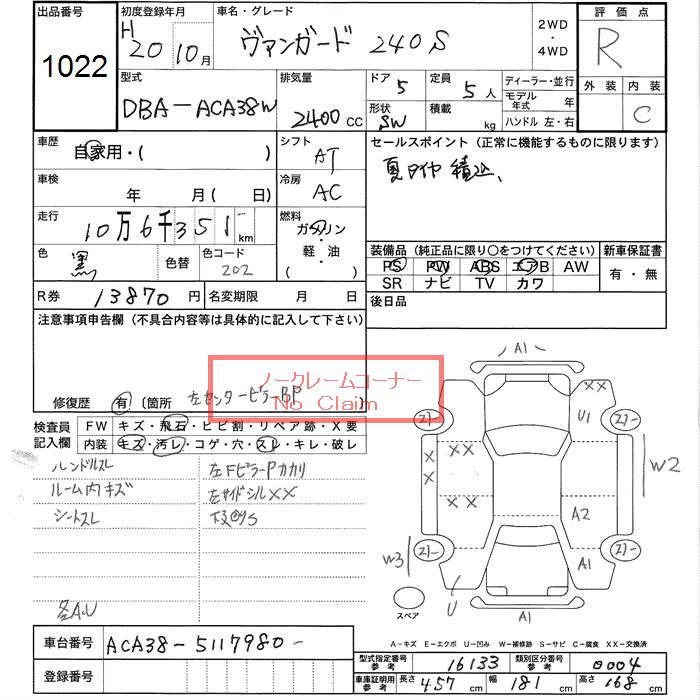 出品番号 初度登録年月 車名・グレード 2WD・4WD 評価点
1022
H20 10月 ヴァンガード 240S R
型式 排気量 ドア 5 定員 5人 ディーラー・並行 外装 内装
DBA-ACA38W 2400cc 形状 SW 積載 kg モデル年式 年 C
ハンドル 左・右
車歴 自家用・( ) シフト AT セールスポイント(正常に機能するものに限ります)
車検 年 月( 日) 冷房 AC 夏タイヤ積込、
走行 10万6千351km 燃料 ガソリン・軽・油( )
色 黒 色替 色コード 202
装備品(純正品に限り○をつけてください) 新車保証書
PS PW ABS エアB AW 有・無
SR ナビ TV カワ
R券 13870円 名変期限 月 日 後日品
注意事項申告欄(不具合内容等は具体的に記入して下さい)
ノークレームコーナー
No Claim
修復歴 有 〔箇所 左センターピラーBP 〕
検査員記入欄 FW キズ・飛石・ヒビ割・リペア跡・X要
内装 キズ・汚レ・コゲ・穴・スレ・キレ・破レ
ハンドルスレ 左FピラーPカカリ
ルーム内キズ 左サイドシルXX
シートスレ 下回りS
各A.U
A1
XX
U1
21-
21-
W2
XX
X
X
XX
A2
W3
21-
21-
A1
U
A1
スペア
車台番号 ACA38-5117980-
A-キズ E-エクボ U-凹み W-補修跡 S-サビ C-腐食 XX-交換済
登録番号
型式指定番号参考 16133 類別区分番号参考 0004
車庫証明用参考 長さ 457cm 幅 181cm 高さ 168cm